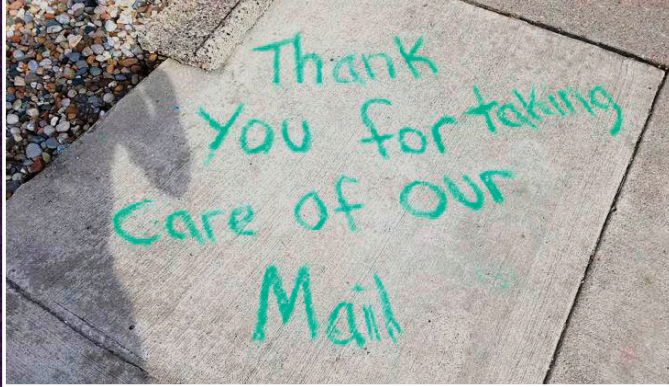 Thank
You for taking
Care of our
Mail